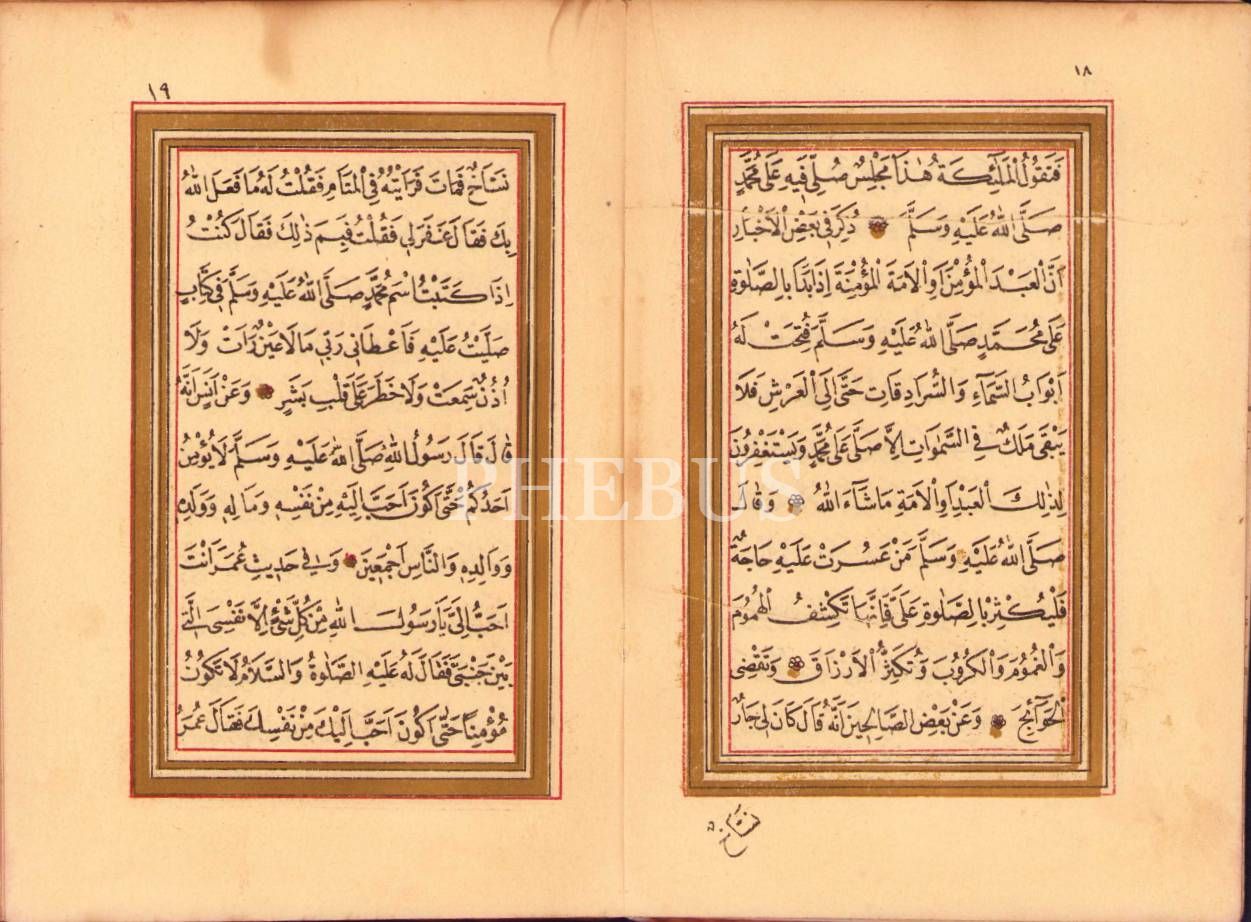 ١٨
فَتَقُولُ الْمَلٰئِكَةُ هٰذَا مَجْلِسٌ صُلِّىَ فِيهِ عَلٰى مُحَمَّدٍ
صَلَّى اللهُ عَلَيْهِ وَسَلَّمَ ذُكِرَ فِى بَعْضِ الْاَخْبَارِ
اَنَّ الْعَبْدَ الْمُؤْمِنَ اَوِ الْاَمَةَ الْمُؤْمِنَةَ اِذَا بَدَاَ بِالصَّلٰوةِ
عَلٰى مُحَمَّدٍ صَلَّى اللهُ عَلَيْهِ وَسَلَّمَ فُتِحَتْ لَهُ
اَبْوَابُ السَّمَآءِ وَالسُّرَادِقَاتِ حَتّٰى اِلَى الْعَرْشِ فَلَا
يَبْقٰى مَلَكٌ فِى السَّمٰوَاتِ اِلَّا صَلّٰى عَلٰى مُحَمَّدٍ وَيَسْتَغْفِرُونَ
لِذٰلِكَ الْعَبْدِ اَوِ الْاَمَةِ مَا شَآءَ اللهُ وَقَالَ
صَلَّى اللهُ عَلَيْهِ وَسَلَّمَ مَنْ عَسُرَتْ عَلَيْهِ حَاجَةٌ
فَلْيُكْثِرْ بِالصَّلٰوةِ عَلَىَّ فَاِنَّهَا تَكْشِفُ الْهُمُومَ
وَالْغُمُومَ وَالْكُرُوبَ وَتُكَثِّرُ الْاَرْزَاقَ وَتَقْضِى
الْحَوَآئِجَ وَعَنْ بَعْضِ الصَّالِحِينَ اَنَّهُ قَالَ كَانَ لِى جَارٌ
نَسَّاخٌ
١٩
نَسَّاخٌ فَمَاتَ فَرَاَيْتُهُ فِى الْمَنَامِ فَقُلْتُ لَهُ مَا فَعَلَ اللهُ
بِكَ فَقَالَ غَفَرَ لِى فَقُلْتُ فَبِمَ ذٰلِكَ فَقَالَ كُنْتُ
اِذَا كَتَبْتُ اسْمَ مُحَمَّدٍ صَلَّى اللهُ عَلَيْهِ وَسَلَّمَ فِى كِتَابٍ
صَلَّيْتُ عَلَيْهِ فَاَعْطَانِى رَبِّى مَا لَا عَيْنٌ رَاَتْ وَلَا
اُذُنٌ سَمِعَتْ وَلَا خَطَرَ عَلٰى قَلْبِ بَشَرٍ وَعَنْ اَنَسٍ اَنَّهُ
قَالَ قَالَ رَسُولُ اللهِ صَلَّى اللهُ عَلَيْهِ وَسَلَّمَ لَا يُؤْمِنُ
اَحَدُكُمْ حَتّٰى اَكُونَ اَحَبَّ اِلَيْهِ مِنْ نَفْسِهِ وَمَالِهِ وَوَلَدِهِ
وَوَالِدِهِ وَالنَّاسِ اَجْمَعِينَ وَفِى حَدِيثِ عُمَرَ اَنْتَ
اَحَبُّ اِلَىَّ يَا رَسُولَ اللهِ مِنْ كُلِّ شَىْءٍ اِلَّا نَفْسِىَ الَّتِى
بَيْنَ جَنْبَىَّ فَقَالَ لَهُ عَلَيْهِ الصَّلٰوةُ وَالسَّلَامُ لَا تَكُونُ
مُؤْمِنًا حَتّٰى اَكُونَ اَحَبَّ اِلَيْكَ مِنْ نَفْسِكَ فَقَالَ عُمَرُ
PHEBUS